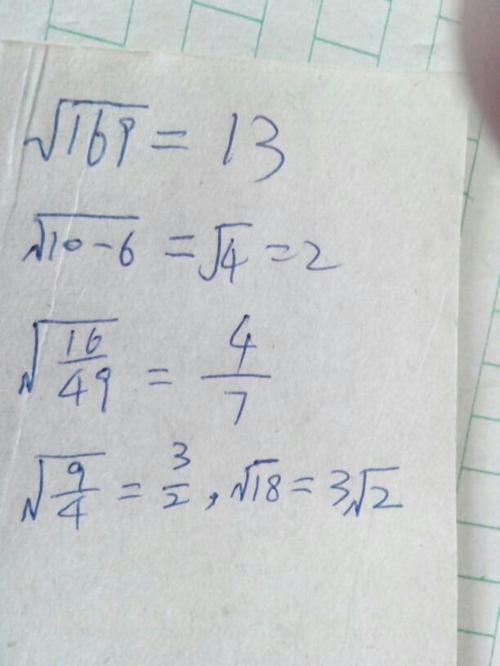 √169 = 13
√10-6 = √4 = 2
√16/49 = 4/7
√9/4 = 3/2, √18 = 3√2